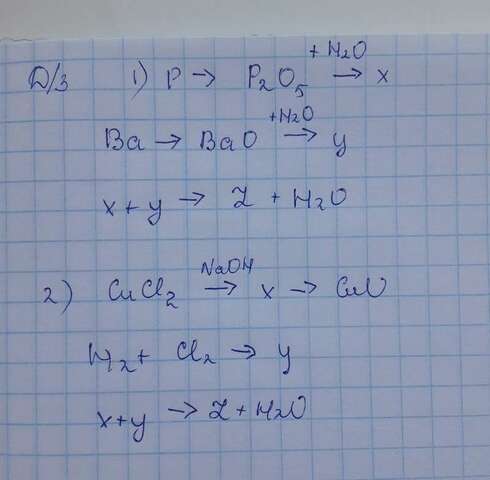 Д/З 1) P → P₂O₅ +H₂O → x
Ba → BaO +H₂O → y
x + y → Z + H₂O
2) CuCl₂ NaOH → x → CuO
H₂ + Cl₂ → y
x+y → Z + H₂O